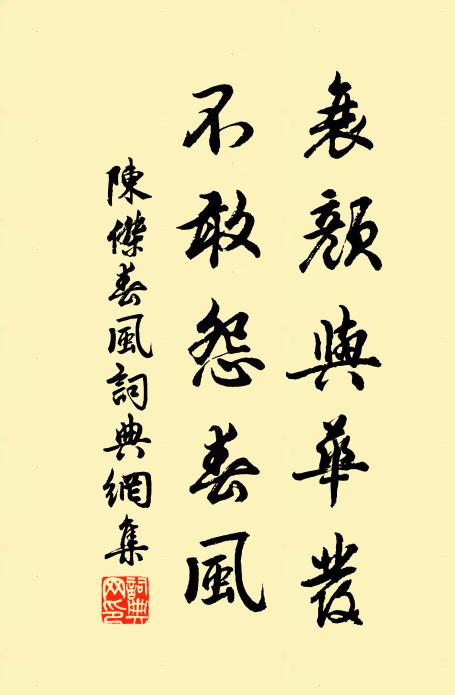 衰顏與華發
不敢怨春風
陳傑春風詞典網集
詞典網印